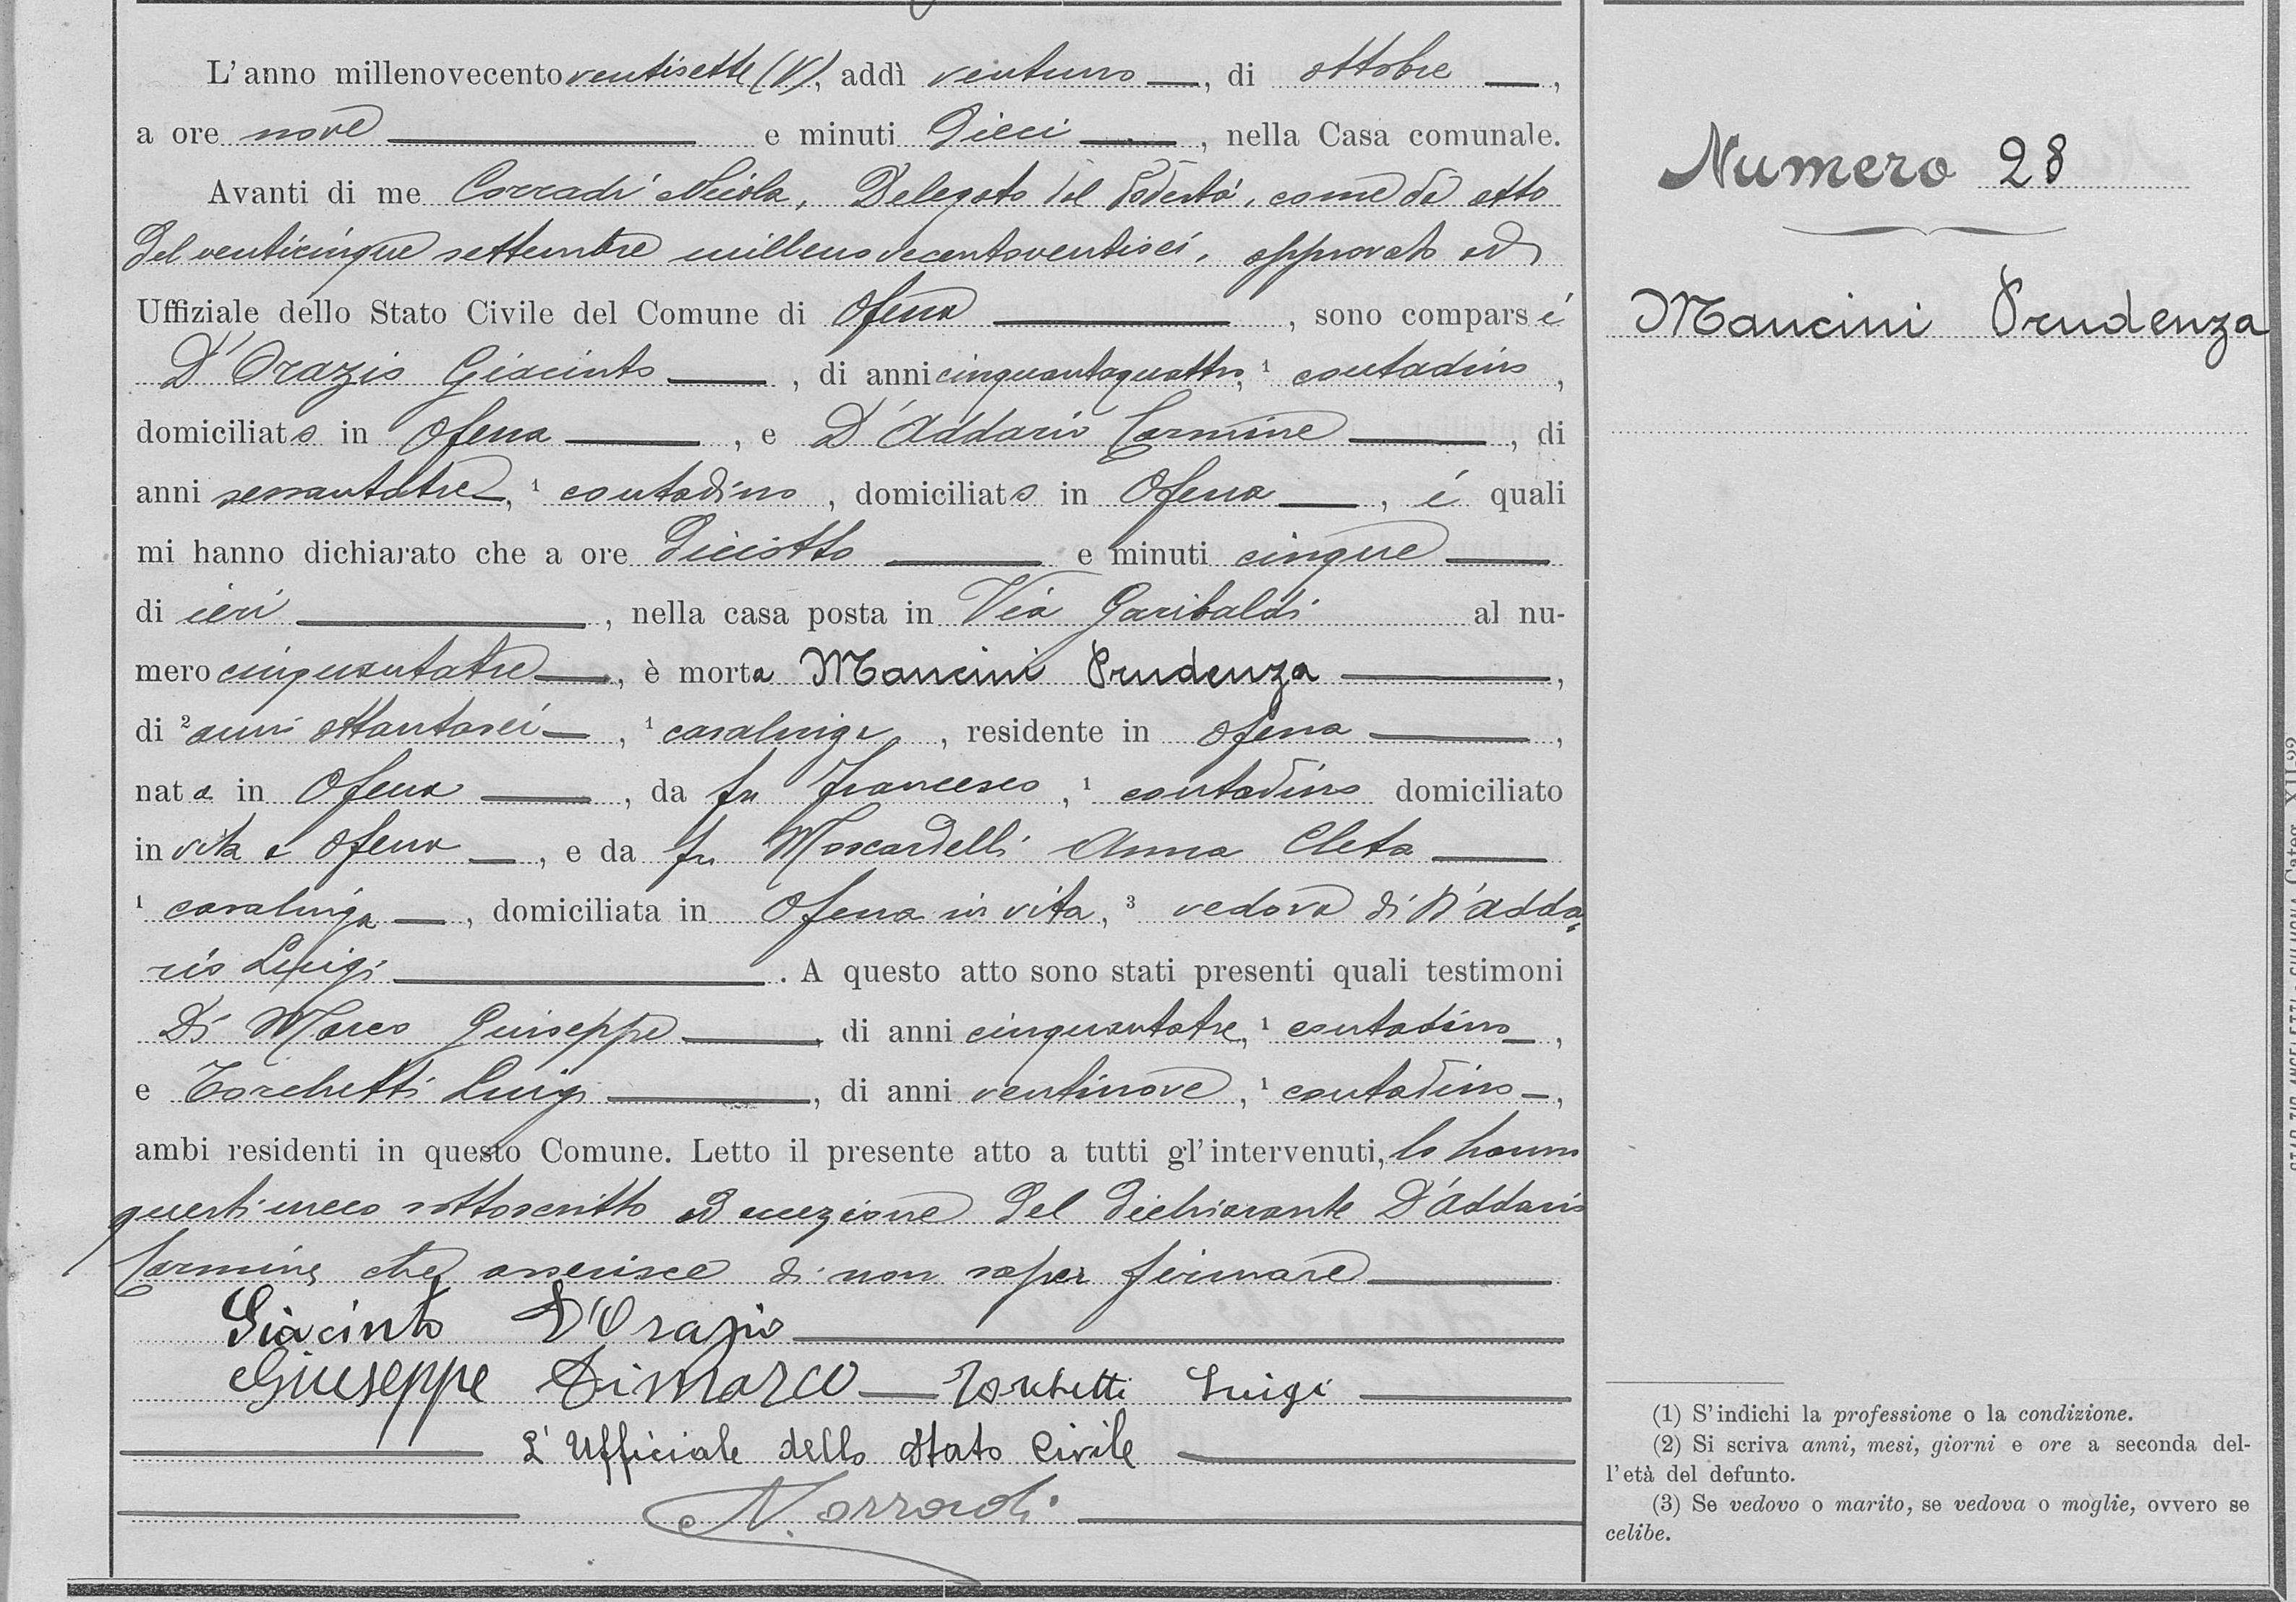 L'anno millenovecento ventisette (V), addì ventuno, di ottobre,
a ore nove e minuti dieci, nella Casa comunale.
Avanti di me Corradi Nicola, Delegato del Podestà, come da atto
del venticinque settembre millenovecentoventisei, approvato ed
Uffiziale dello Stato Civile del Comune di Ofena, sono comparsi
D'Orazio Giacinto, di anni cinquantaquattro, ¹ contadino,
domiciliato in Ofena, e D'Addario Carmine, di
anni sessantatre, ¹ contadino, domiciliato in Ofena, i quali
mi hanno dichiarato che a ore diciotto e minuti cinque
di ieri, nella casa posta in Via Garibaldi al nu-
mero cinquantatre, è morta Mancini Prudenza,
di ² anni ottantasei, ¹ casalinga, residente in Ofena,
nata in Ofena, da fu Francesco, ¹ contadino domiciliato
in vita a Ofena, e da fu Moscardelli Anna Cleta
¹ casalinga, domiciliata in Ofena in vita, ³ vedova di D'Adda-
rio Luigi. A questo atto sono stati presenti quali testimoni
Di Marco Giuseppe, di anni cinquantatre, ¹ contadino,
e Torchetti Luigi, di anni ventinove, ¹ contadino,
ambi residenti in questo Comune. Letto il presente atto a tutti gl'intervenuti, lo hanno
questi meco sottoscritto ad eccezione del dichiarante D'Addario
Carmine che asserisce di non saper firmare
Giacinto D'Orazio
Giuseppe Dimarco Torchetti Luigi
L'Ufficiale dello Stato Civile
N. Corradi
Numero 28
Mancini Prudenza
(1) S'indichi la professione o la condizione.
(2) Si scriva anni, mesi, giorni e ore a seconda del-
l'età del defunto.
(3) Se vedovo o marito, se vedova o moglie, ovvero se
celibe.